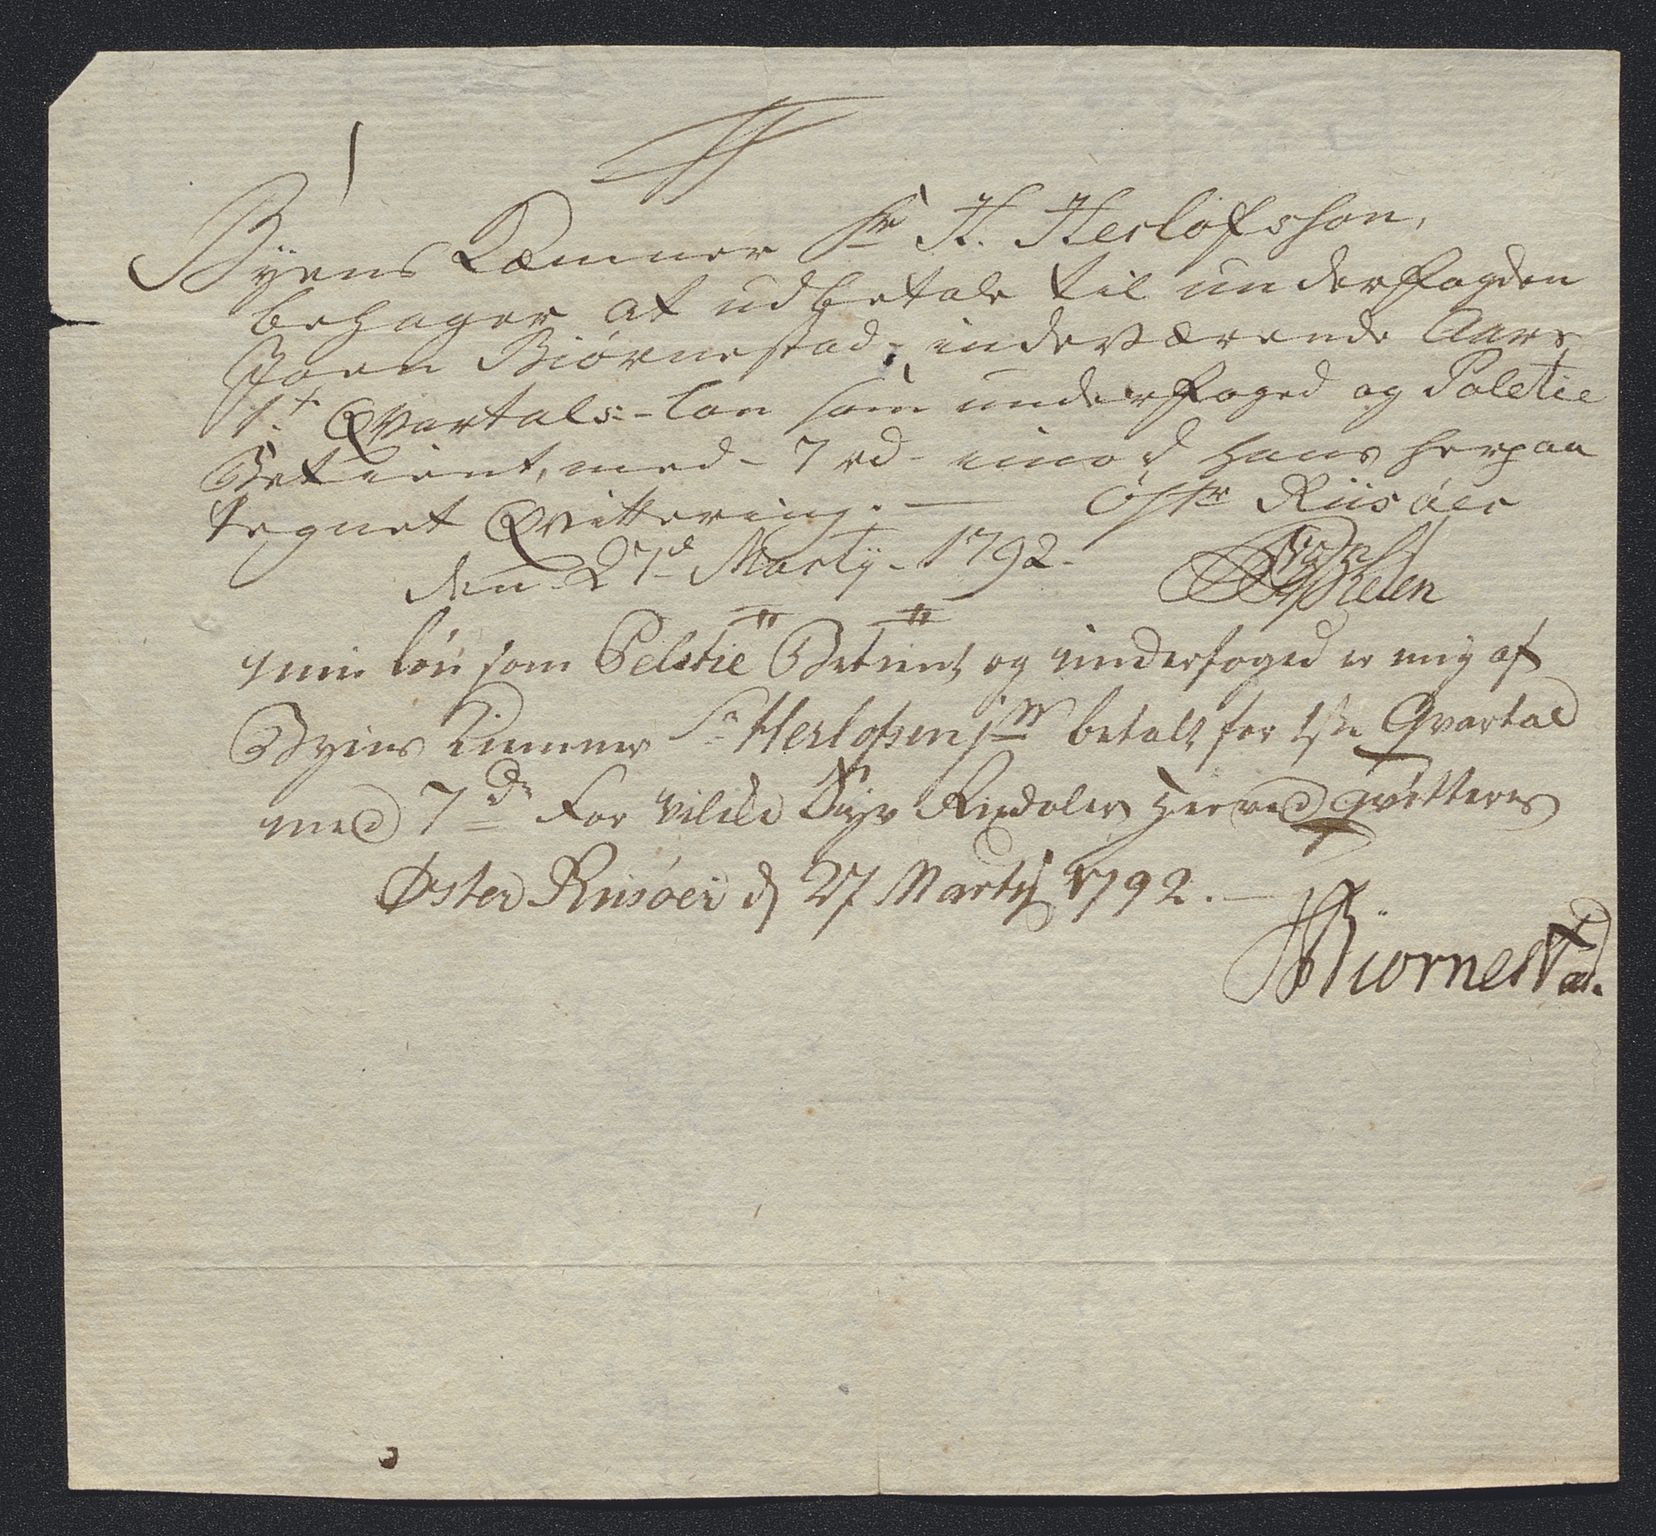 1
Byens Kæmner Sr H. Herlofsson,
behager at udbetale til underfogden
Joen Biørnestad, indeværende Aars
1t Qvartals-Løn som underfoged og Poletie
Betient, med - 7 rd - imod hans herpaa
tegnet Qvittering. — Øster Riisøer
den 27d Martÿ - 1792.
min løn som Poletie Betient og underfoged er mig af
Byens Kemner Sr Herlofsen jnr betalt for 1ste Qvartal
med 7 dr For vilke Syv Rixdaler Herved qvitteres
Øster Riisøer d 27 Martÿ 1792. —
JBiørnestad.